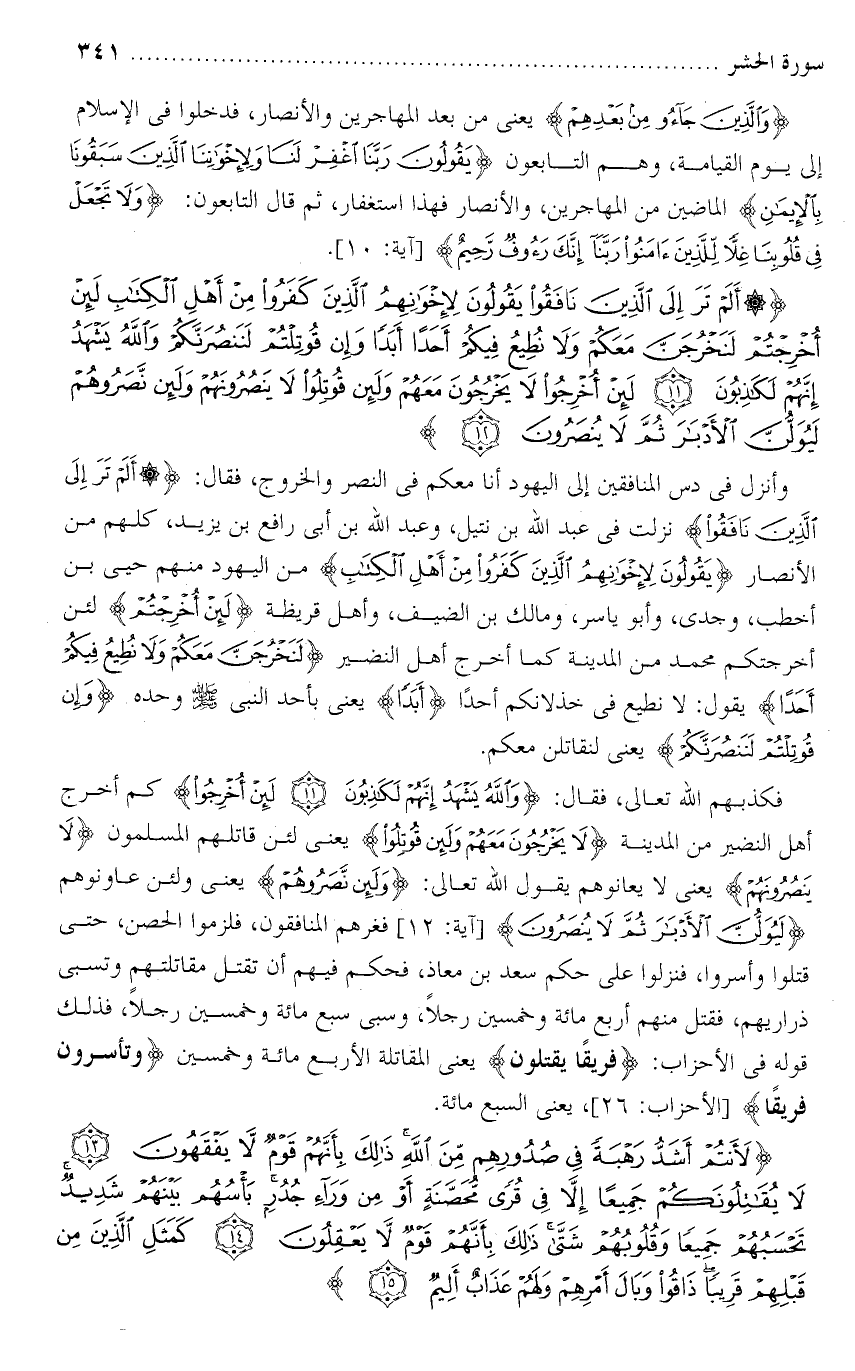 سورة الحشر ........................................................................ ٣٤١
﴿وَٱلَّذِينَ جَآءُو مِنۢ بَعۡدِهِمۡ﴾ يعنى من بعد المهاجرين والأنصار، فدخلوا فى الإسلام
إلى يــوم القيامــة، وهــم التــابعون ﴿يَقُولُونَ رَبَّنَا ٱغۡفِرۡ لَنَا وَلِإِخۡوَٰنِنَا ٱلَّذِينَ سَبَقُونَا
بِٱلۡإِيمَٰنِ﴾ الماضين من المهاجرين، والأنصار فهذا استغفار، ثم قال التابعون: ﴿وَلَا تَجۡعَلۡ
فِى قُلُوبِنَا غِلّٗا لِّلَّذِينَ ءَامَنُواْ رَبَّنَآ إِنَّكَ رَءُوفٞ رَّحِيمٌ﴾ [آية: ١٠].
﴿۞ أَلَمۡ تَرَ إِلَى ٱلَّذِينَ نَافَقُواْ يَقُولُونَ لِإِخۡوَٰنِهِمُ ٱلَّذِينَ كَفَرُواْ مِنۡ أَهۡلِ ٱلۡكِتَٰبِ لَئِنۡ
أُخۡرِجۡتُمۡ لَنَخۡرُجَنَّ مَعَكُمۡ وَلَا نُطِيعُ فِيكُمۡ أَحَدًا أَبَدٗا وَإِن قُوتِلۡتُمۡ لَنَنصُرَنَّكُمۡ وَٱللَّهُ يَشۡهَدُ
إِنَّهُمۡ لَكَٰذِبُونَ ۝١١ لَئِنۡ أُخۡرِجُواْ لَا يَخۡرُجُونَ مَعَهُمۡ وَلَئِن قُوتِلُواْ لَا يَنصُرُونَهُمۡ وَلَئِن نَّصَرُوهُمۡ
لَيُوَلُّنَّ ٱلۡأَدۡبَٰرَ ثُمَّ لَا يُنصَرُونَ ۝١٢ ﴾
وأنزل فى دس المنافقين إلى اليهود أنا معكم فى النصر والخروج، فقال: ﴿۞ أَلَمۡ تَرَ إِلَى
ٱلَّذِينَ نَافَقُواْ﴾ نزلت فى عبد الله بن نتيل، وعبد الله بن أبى رافع بن يزيــد، كلــهم مــن
الأنصار ﴿يَقُولُونَ لِإِخۡوَٰنِهِمُ ٱلَّذِينَ كَفَرُواْ مِنۡ أَهۡلِ ٱلۡكِتَٰبِ﴾ مــن اليهود منهـم حيـى بـن
أخطب، وجدى، وأبو ياسر، ومالك بن الضيـف، وأهـل قريظـة ﴿لَئِنۡ أُخۡرِجۡتُمۡ﴾ لئـن
أخرجتكـم محمـد مـن المدينـة كمـا أخـرج أهـل النضـير ﴿لَنَخۡرُجَنَّ مَعَكُمۡ وَلَا نُطِيعُ فِيكُمۡ
أَحَدًا﴾ يقول: لا نطيع فى خذلانكم أحدًا ﴿أَبَدٗا﴾ يعنى بأحد النبى ﷺ وحده ﴿وَإِن
قُوتِلۡتُمۡ لَنَنصُرَنَّكُمۡ﴾ يعنى لنقاتلن معكم.
فكذبـهم الله تعـالى، فقـال: ﴿وَٱللَّهُ يَشۡهَدُ إِنَّهُمۡ لَكَٰذِبُونَ ۝١١ لَئِنۡ أُخۡرِجُواْ﴾ كـم أخـرج
أهل النضير من المدينـة ﴿لَا يَخۡرُجُونَ مَعَهُمۡ وَلَئِن قُوتِلُواْ﴾ يعنـى لئـن قاتلـهم المسـلمون ﴿لَا
يَنصُرُونَهُمۡ﴾ يعنى لا يعانوهم يقـول الله تعـالى: ﴿وَلَئِن نَّصَرُوهُمۡ﴾ يعنـى ولئـن عـاونوهم
﴿لَيُوَلُّنَّ ٱلۡأَدۡبَٰرَ ثُمَّ لَا يُنصَرُونَ﴾ [آية: ١٢] فغرهم المنافقون، فلزموا الحصن، حتـى
قتلوا وأسروا، فنزلوا على حكم سعد بن معاذ، فحكـم فيـهم أن تقتـل مقاتلتـهم وتسـبى
ذراريهم، فقتل منهم أربع مائة وخمسين رجلاً، وسبى سبع مائة وخمسـين رجـلاً، فذلـك
قوله فى الأحزاب: ﴿فريقًا يقتلون﴾ يعنى المقاتلة الأربـع مائـة وخمسـين ﴿وتأسـرون
فريقًا﴾ [الأحزاب: ٢٦]، يعنى السبع مائة.
﴿لَأَنتُمۡ أَشَدُّ رَهۡبَةٗ فِى صُدُورِهِم مِّنَ ٱللَّهِۚ ذَٰلِكَ بِأَنَّهُمۡ قَوۡمٞ لَّا يَفۡقَهُونَ ۝١٣
لَا يُقَٰتِلُونَكُمۡ جَمِيعًا إِلَّا فِى قُرٗى مُّحَصَّنَةٍ أَوۡ مِن وَرَآءِ جُدُرِۭۚ بَأۡسُهُم بَيۡنَهُمۡ شَدِيدٞۚ
تَحۡسَبُهُمۡ جَمِيعٗا وَقُلُوبُهُمۡ شَتَّىٰۚ ذَٰلِكَ بِأَنَّهُمۡ قَوۡمٞ لَّا يَعۡقِلُونَ ۝١٤ كَمَثَلِ ٱلَّذِينَ مِن
قَبۡلِهِمۡ قَرِيبٗاۖ ذَاقُواْ وَبَالَ أَمۡرِهِمۡ وَلَهُمۡ عَذَابٌ أَلِيمٞ ۝١٥ ﴾